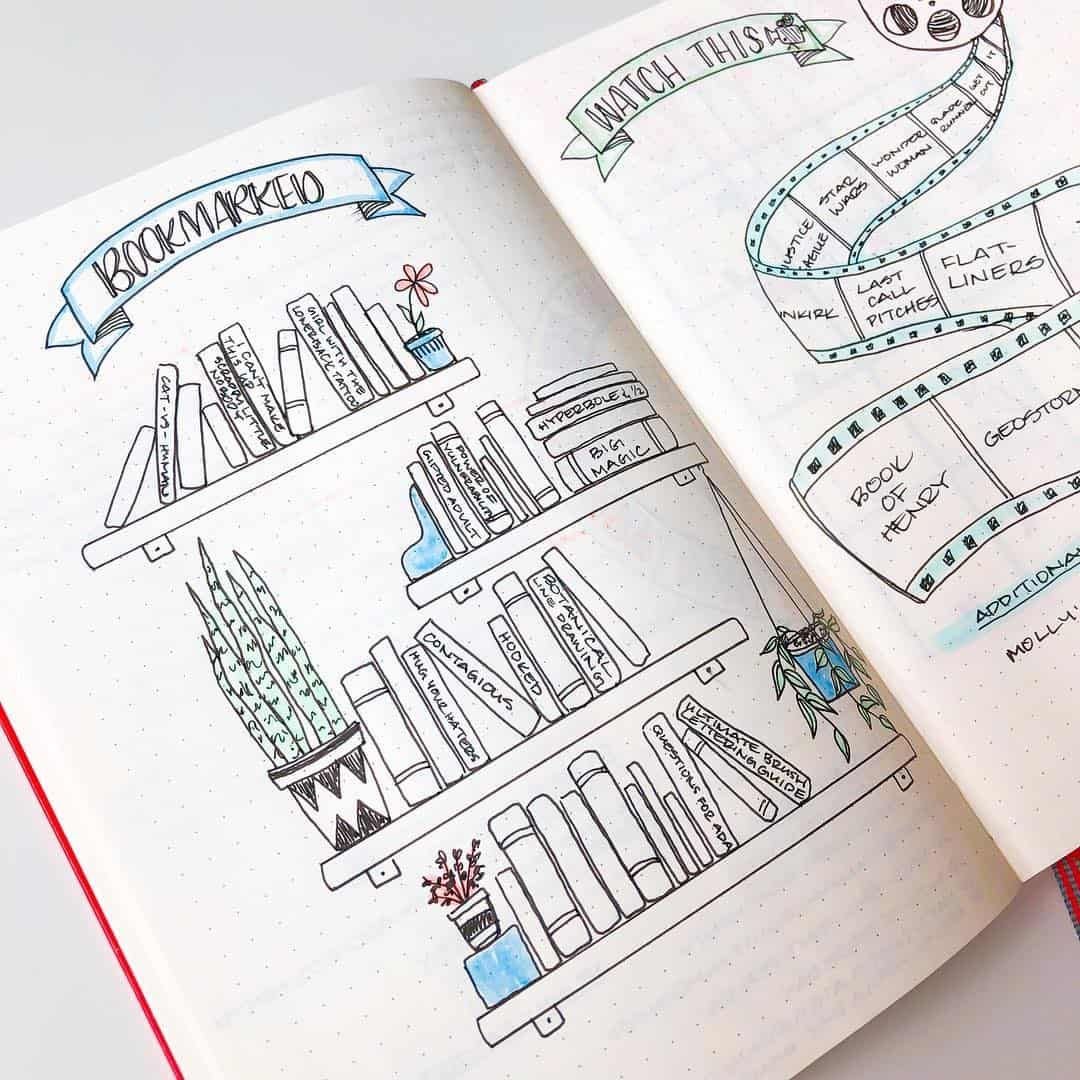 BOOKMARKED
CAT-IN-HUMAN
I CAN'T MAKE
THIS UP
GIRL WITH THE
LOWER BACK TATTOO
GIFTED ADULT
POWER OF
VULNERABILITY
HYPERBOLE & 1/2
BIG
MAGIC
HUG YOUR HATERS
CONTAGIOUS
HOOKED
BOTANICAL
LINE DRAWING
QUESTIONS FOR ADA
ULTIMATE BRUSH
LETTERING GUIDE
WATCH THIS
IT
GET
OUT
BLADE
RUNNER
WONDER
WOMAN
STAR
WARS
JUSTICE
LEAGUE
NKIRK
LAST
CALL
PITCHES
FLAT-
LINERS
BOOK
OF
HENRY
GEOSTORM
ADDITIONA
MOLLY'